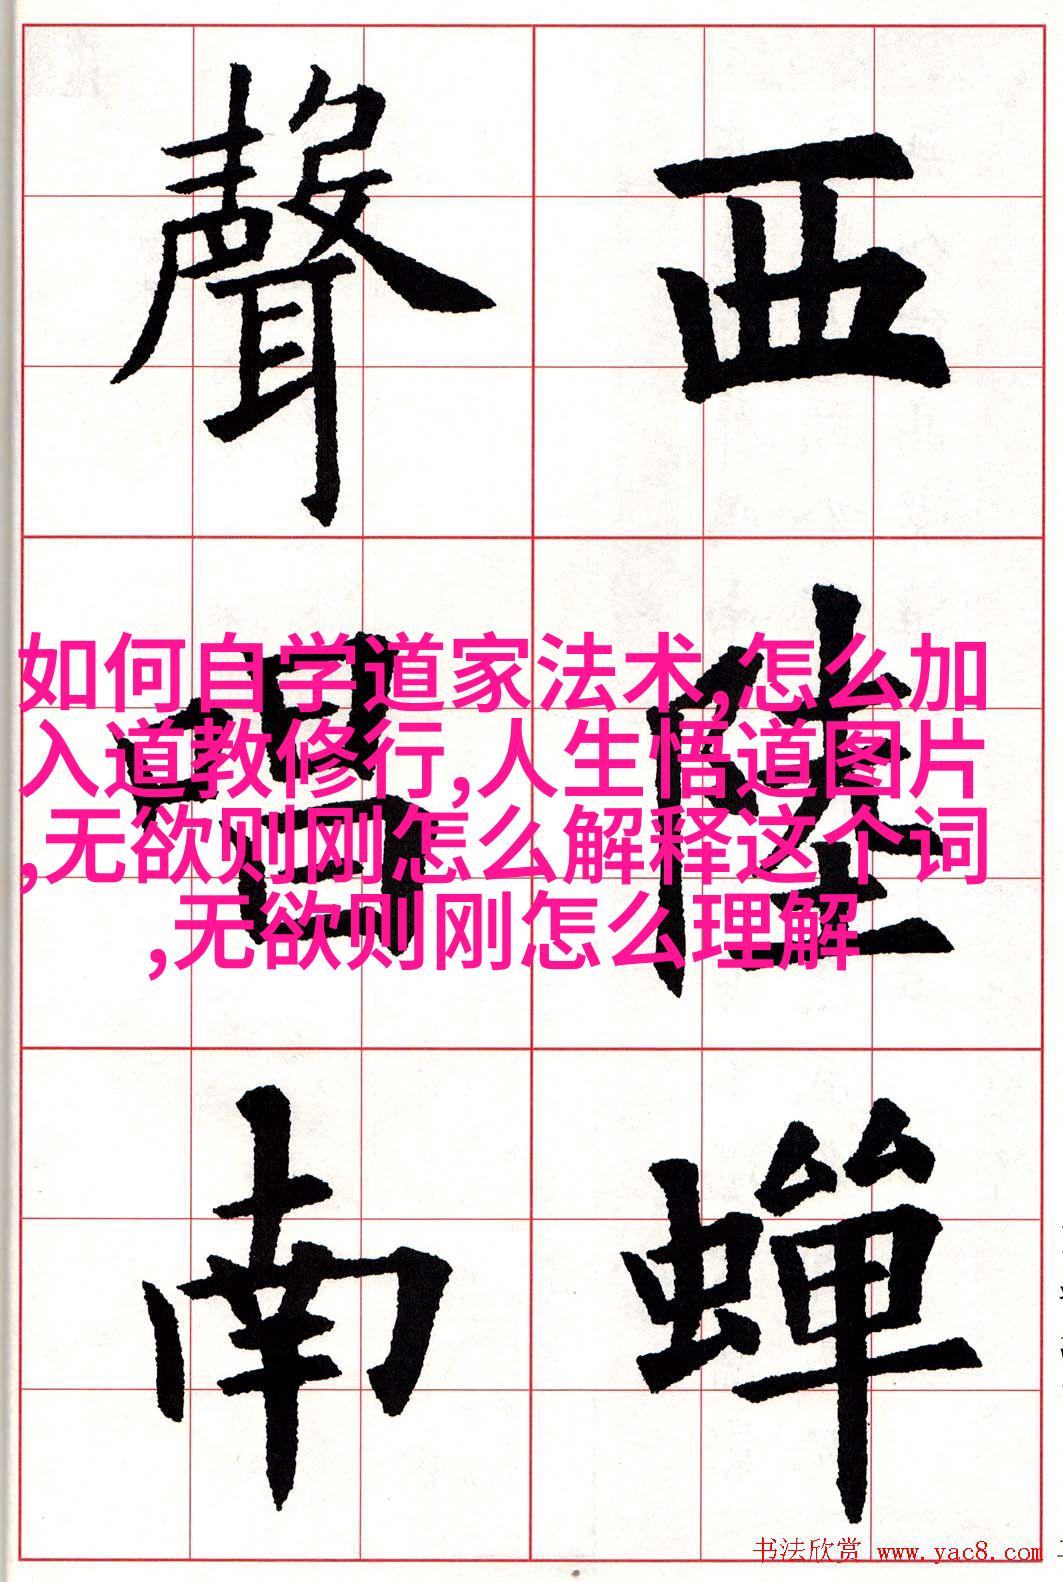 西陸蟬
聲唱南
如何自学道家法术,怎么加
入道教修行,人生悟道图片
,无欲则刚怎么解释这个词
,无欲则刚怎么理解
书法欣赏 www.yac8.com